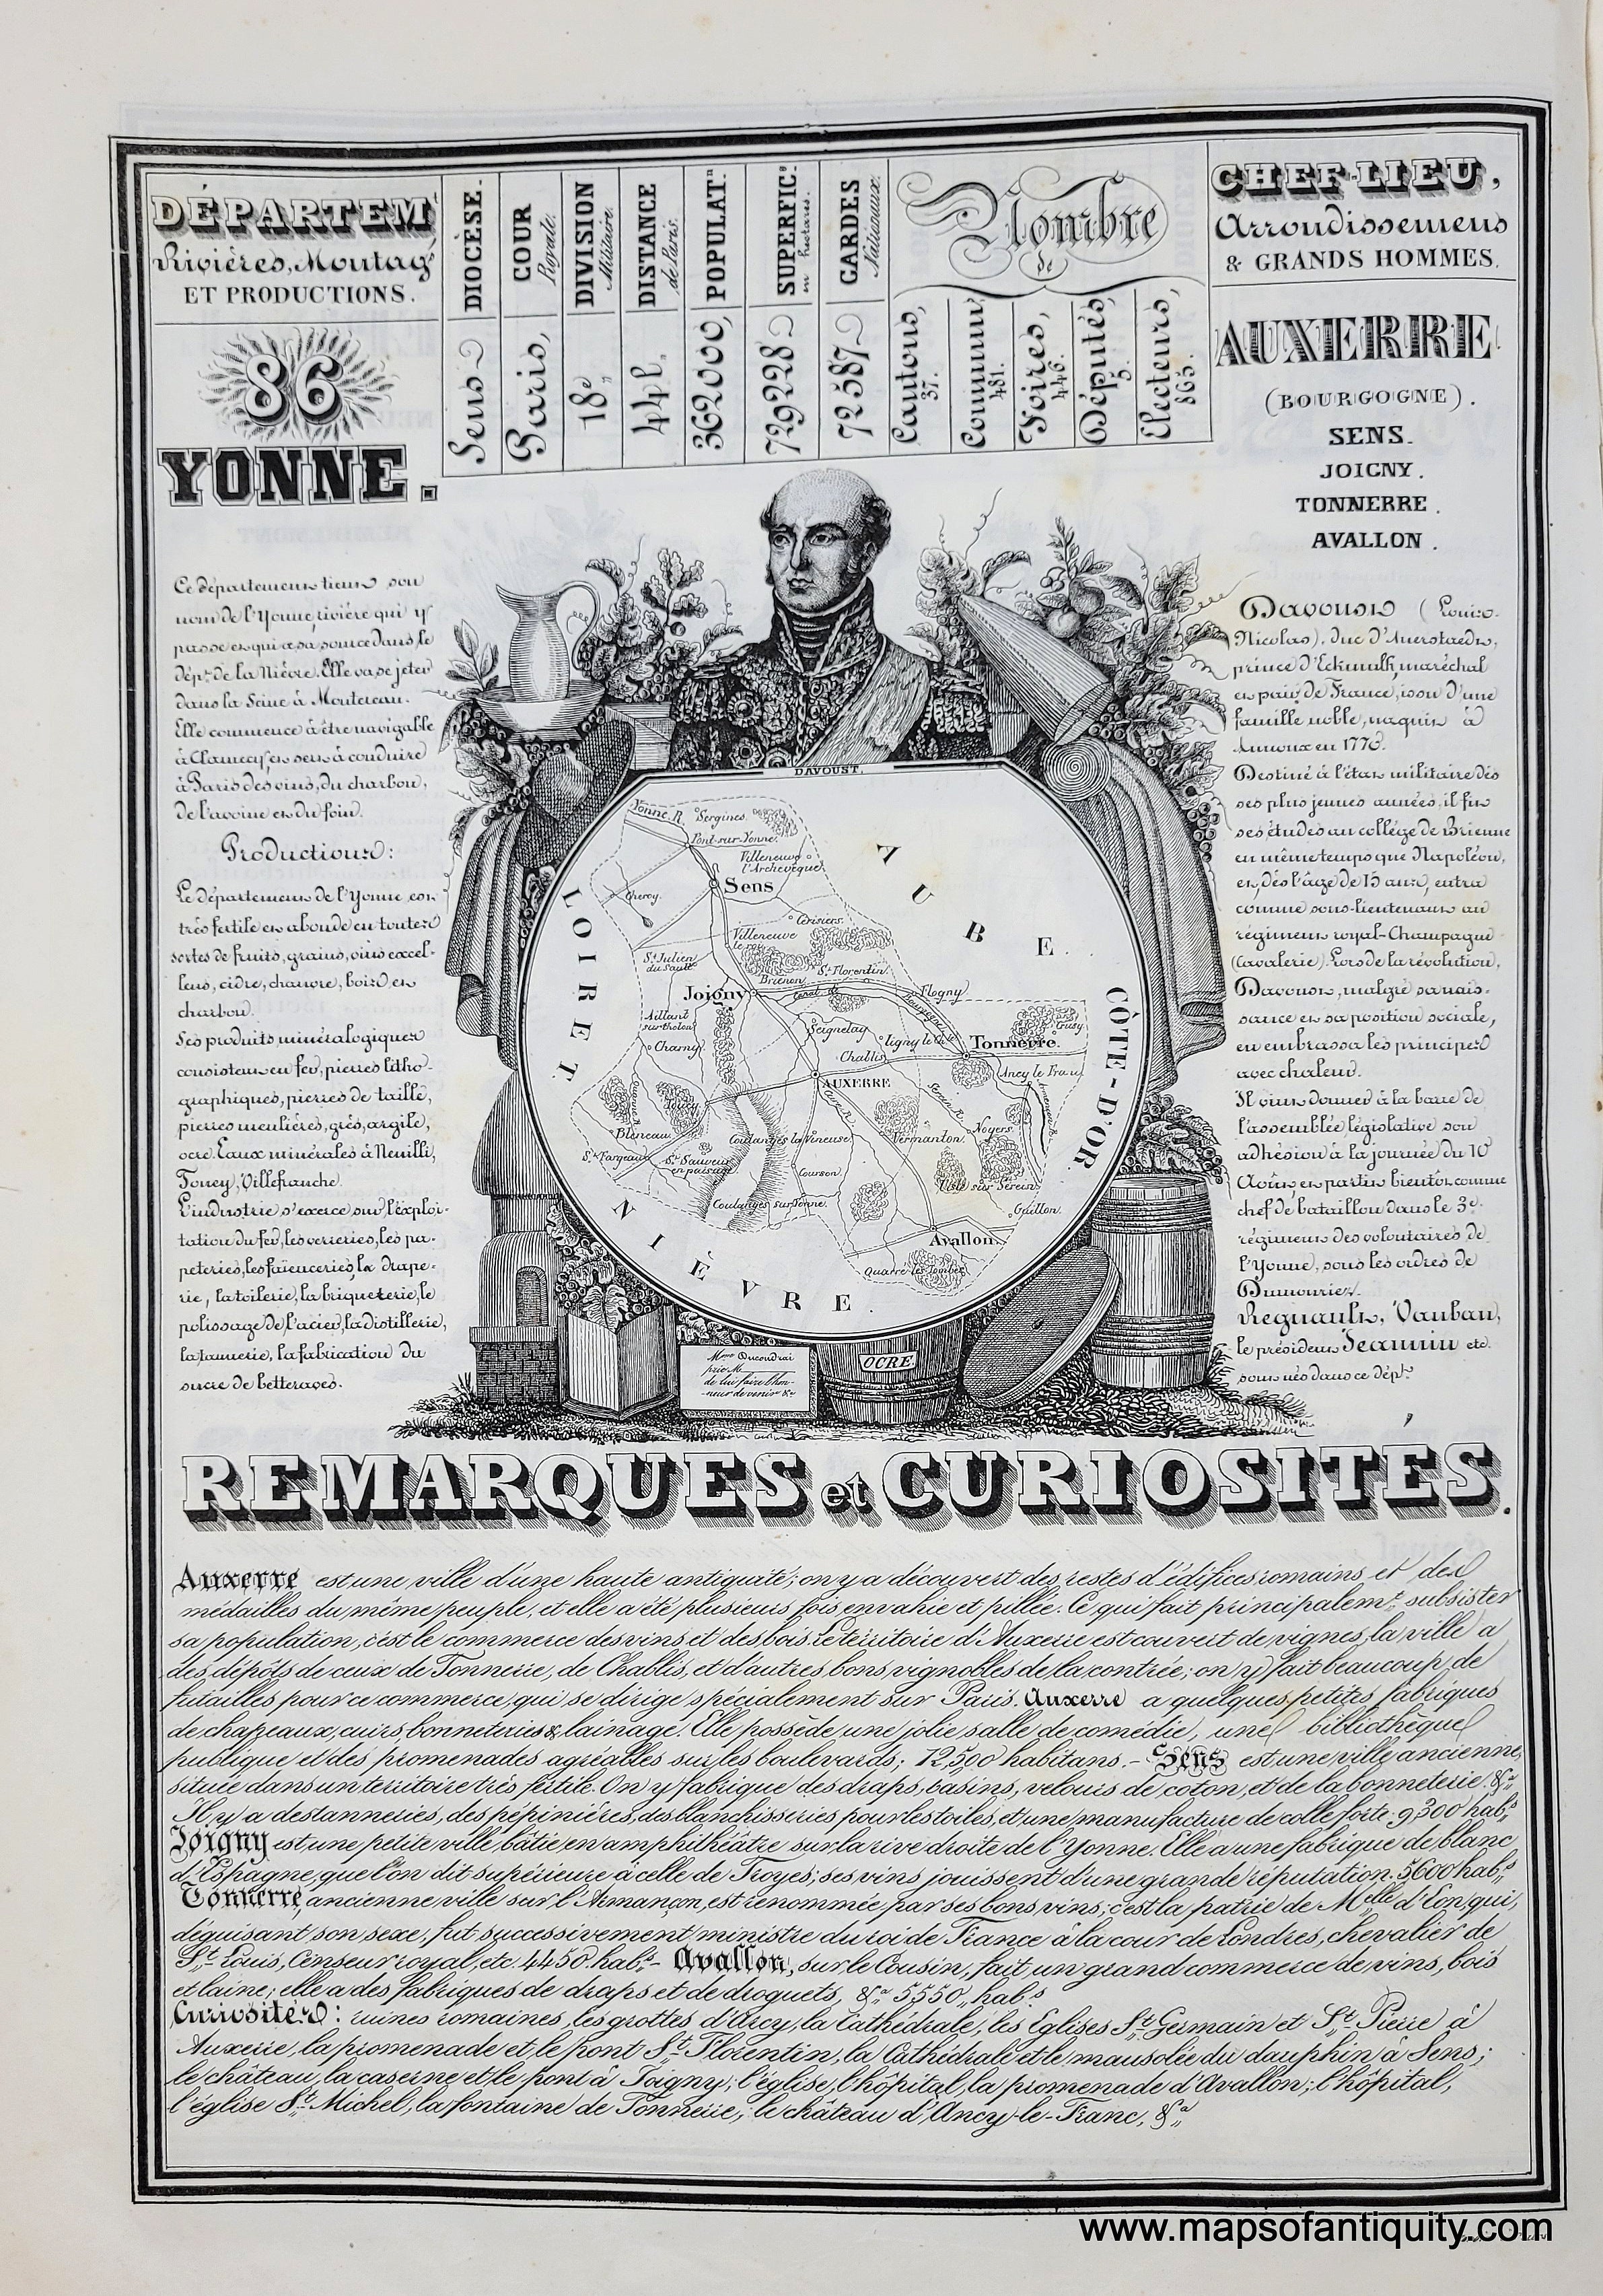 DÉPARTEM.t
Rivières, Montag.s
ET PRODUCTIONS.
86
YONNE.
DIOCÈSE.
Sens
COUR
Royale.
Paris,
DIVISION
Militaire.
18e
DISTANCE
de Paris.
44 l.
POPULAT.n
362000,
SUPERFIC.e
en hectares.
729228
GARDES
Nationaux.
72587
Nombre
de
Cantons,
37.
Communes,
481.
Foires,
446.
Députés,
5.
Electeurs,
865.
CHEF-LIEU,
Arrondissemens
& GRANDS HOMMES.
AUXERRE.
(BOURGOGNE).
SENS.
JOIGNY.
TONNERRE.
AVALLON.
Ce département tient son
nom de l'Yonne, rivière qui y
passe et qui a sa source dans le
dép.t de la Nièvre. Elle va se jeter
dans la Seine à Montereau.
Elle commence à être navigable
à Clamecy, et sert à conduire
à Paris des vins, du charbon,
de l'avoine et du foin.
Productions:
Le département de l'Yonne est
très fertile et abonde en toutes
sortes de fruits, grains, vins excel-
lens, cidre, chanvre, bois et
charbon.
Ses produits minéralogiques
consistent en fer, pierres litho-
graphiques, pierres de taille,
pierres meulières, grès, argile,
ocre. Eaux minérales à Neuilli,
Toucy, Villefranche.
L'industrie s'exerce sur l'exploi-
tation du fer, les verreries, les pa-
peteries, les faïenceries, la drape-
rie, la toilerie, la briqueterie, le
polissage de l'acier, la distillerie,
la tannerie, la fabrication du
sucre de betteraves.
DAVOUST.
Yonne R.
Sergines.
Pont-sur-Yonne.
Villeneuve
l'Archevêque
Sens
Cheroy.
Cérisiers.
Villeneuve
le roy
St Julien
du Sault
St Florentin
Brienon
Joigny
Canal de
Bourgogne
Flogny
Aillant
sur tholon
Seignelay
Ligny le Ch.
Tonnerre.
Charny
Chablis
AUXERRE
Ancy le Franc
Toucy
Bléneau
Coulanges la Vineuse
Vermanton.
Noyers
St Fargeau
St Sauveur
en puisaye
Courson
Coulanges sur Yonne.
L'Isle sur Serein
Guillon.
Avallon.
Quarré les Tombes
AUBE.
CÔTE-D'OR.
NIÈVRE.
LOIRET
Mme Ducoudrai
prie M
de lui faire l'hon-
-neur de venir &c
OCRE.
Davoust (Louis-
Nicolas), duc d'Auerstaedt,
prince d'Eckmulh, maréchal
et pair de France, issu d'une
famille noble, naquit à
Annoux en 1770.
Destiné à l'état militaire dès
ses plus jeunes années, il fit
ses études au collége de Brienne
en même temps que Napoléon,
et, dès l'âge de 15 ans, entra
comme sous-lieutenant au
régiment royal-Champagne
(Cavalerie). Lors de la révolution,
Davoust, malgré sa nais-
sance et sa position sociale,
en embrassa les principes
avec chaleur.
Il vint donner à la barre de
l'assemblée législative son
adhésion à la journée du 10
Août, et partit bientôt comme
chef de bataillon dans le 3e.
régiment des volontaires de
l'Yonne, sous les ordres de
Dumouriez.
Regnault, Vauban,
le président Jeannin etc.
sont nés dans ce dép.t
REMARQUES et CURIOSITÉS.
Auxerre est une ville d'une haute antiquité; on y a découvert des restes d'édifices romains et des
médailles du même peuple, et elle a été plusieurs fois envahie et pillée. Ce qui fait principalem.t subsister
sa population, c'est le commerce des vins et des bois. Le territoire d'Auxerre est couvert de vignes, la ville a
des dépôts de ceux de Tonnerre, de Chablis, et d'autres bons vignobles de la contrée; on y fait beaucoup de
futailles pour ce commerce, qui se dirige spécialement sur Paris. Auxerre a quelques petites fabriques
de chapeaux, cuirs, bonneteries & lainage. Elle possède une jolie salle de comédie, une bibliothèque
publique et des promenades agréables sur les boulevards; 12,500 habitans. - Sens est une ville ancienne,
située dans un territoire très fertile. On y fabrique des draps, basins, velours de coton, et de la bonneterie. &.a
Il y a des tanneries, des pépinières, des blanchisseries pour les toiles, et une manufacture de colle forte. 9,300 hab.s
Joigny est une petite ville bâtie en amphithéâtre sur la rive droite de l'Yonne. Elle a une fabrique de blanc
d'Espagne, que l'on dit supérieure à celle de Troyes; ses vins jouissent d'une grande réputation. 5600 hab.s
Tonnerre, ancienne ville sur l'Armançon, est renommée par ses bons vins; c'est la patrie de Melle d'Eon, qui,
déguisant son sexe, fut successivement ministre du roi de France à la cour de Londres, chevalier de
St. Louis, Censeur royal, etc. 4450 hab.s - Avallon, sur le Cousin, fait un grand commerce de vins, bois
et laine; elle a des fabriques de draps et de droguets, &.a 5550 hab.s
Curiosités: ruines romaines, les grottes d'Arcy, la Cathédrale, les Eglises St. Germain et St. Pierre à
Auxerre, la promenade et le pont St. Florentin, la Cathédrale et le mausolée du dauphin à Sens;
le château, la caserne et le pont à Joigny; l'église, l'hôpital, la promenade d'Avallon; l'hôpital,
l'église St. Michel, la fontaine de Tonnerre, le château d'Ancy-le-Franc, &.a
www.mapsofantiquity.com